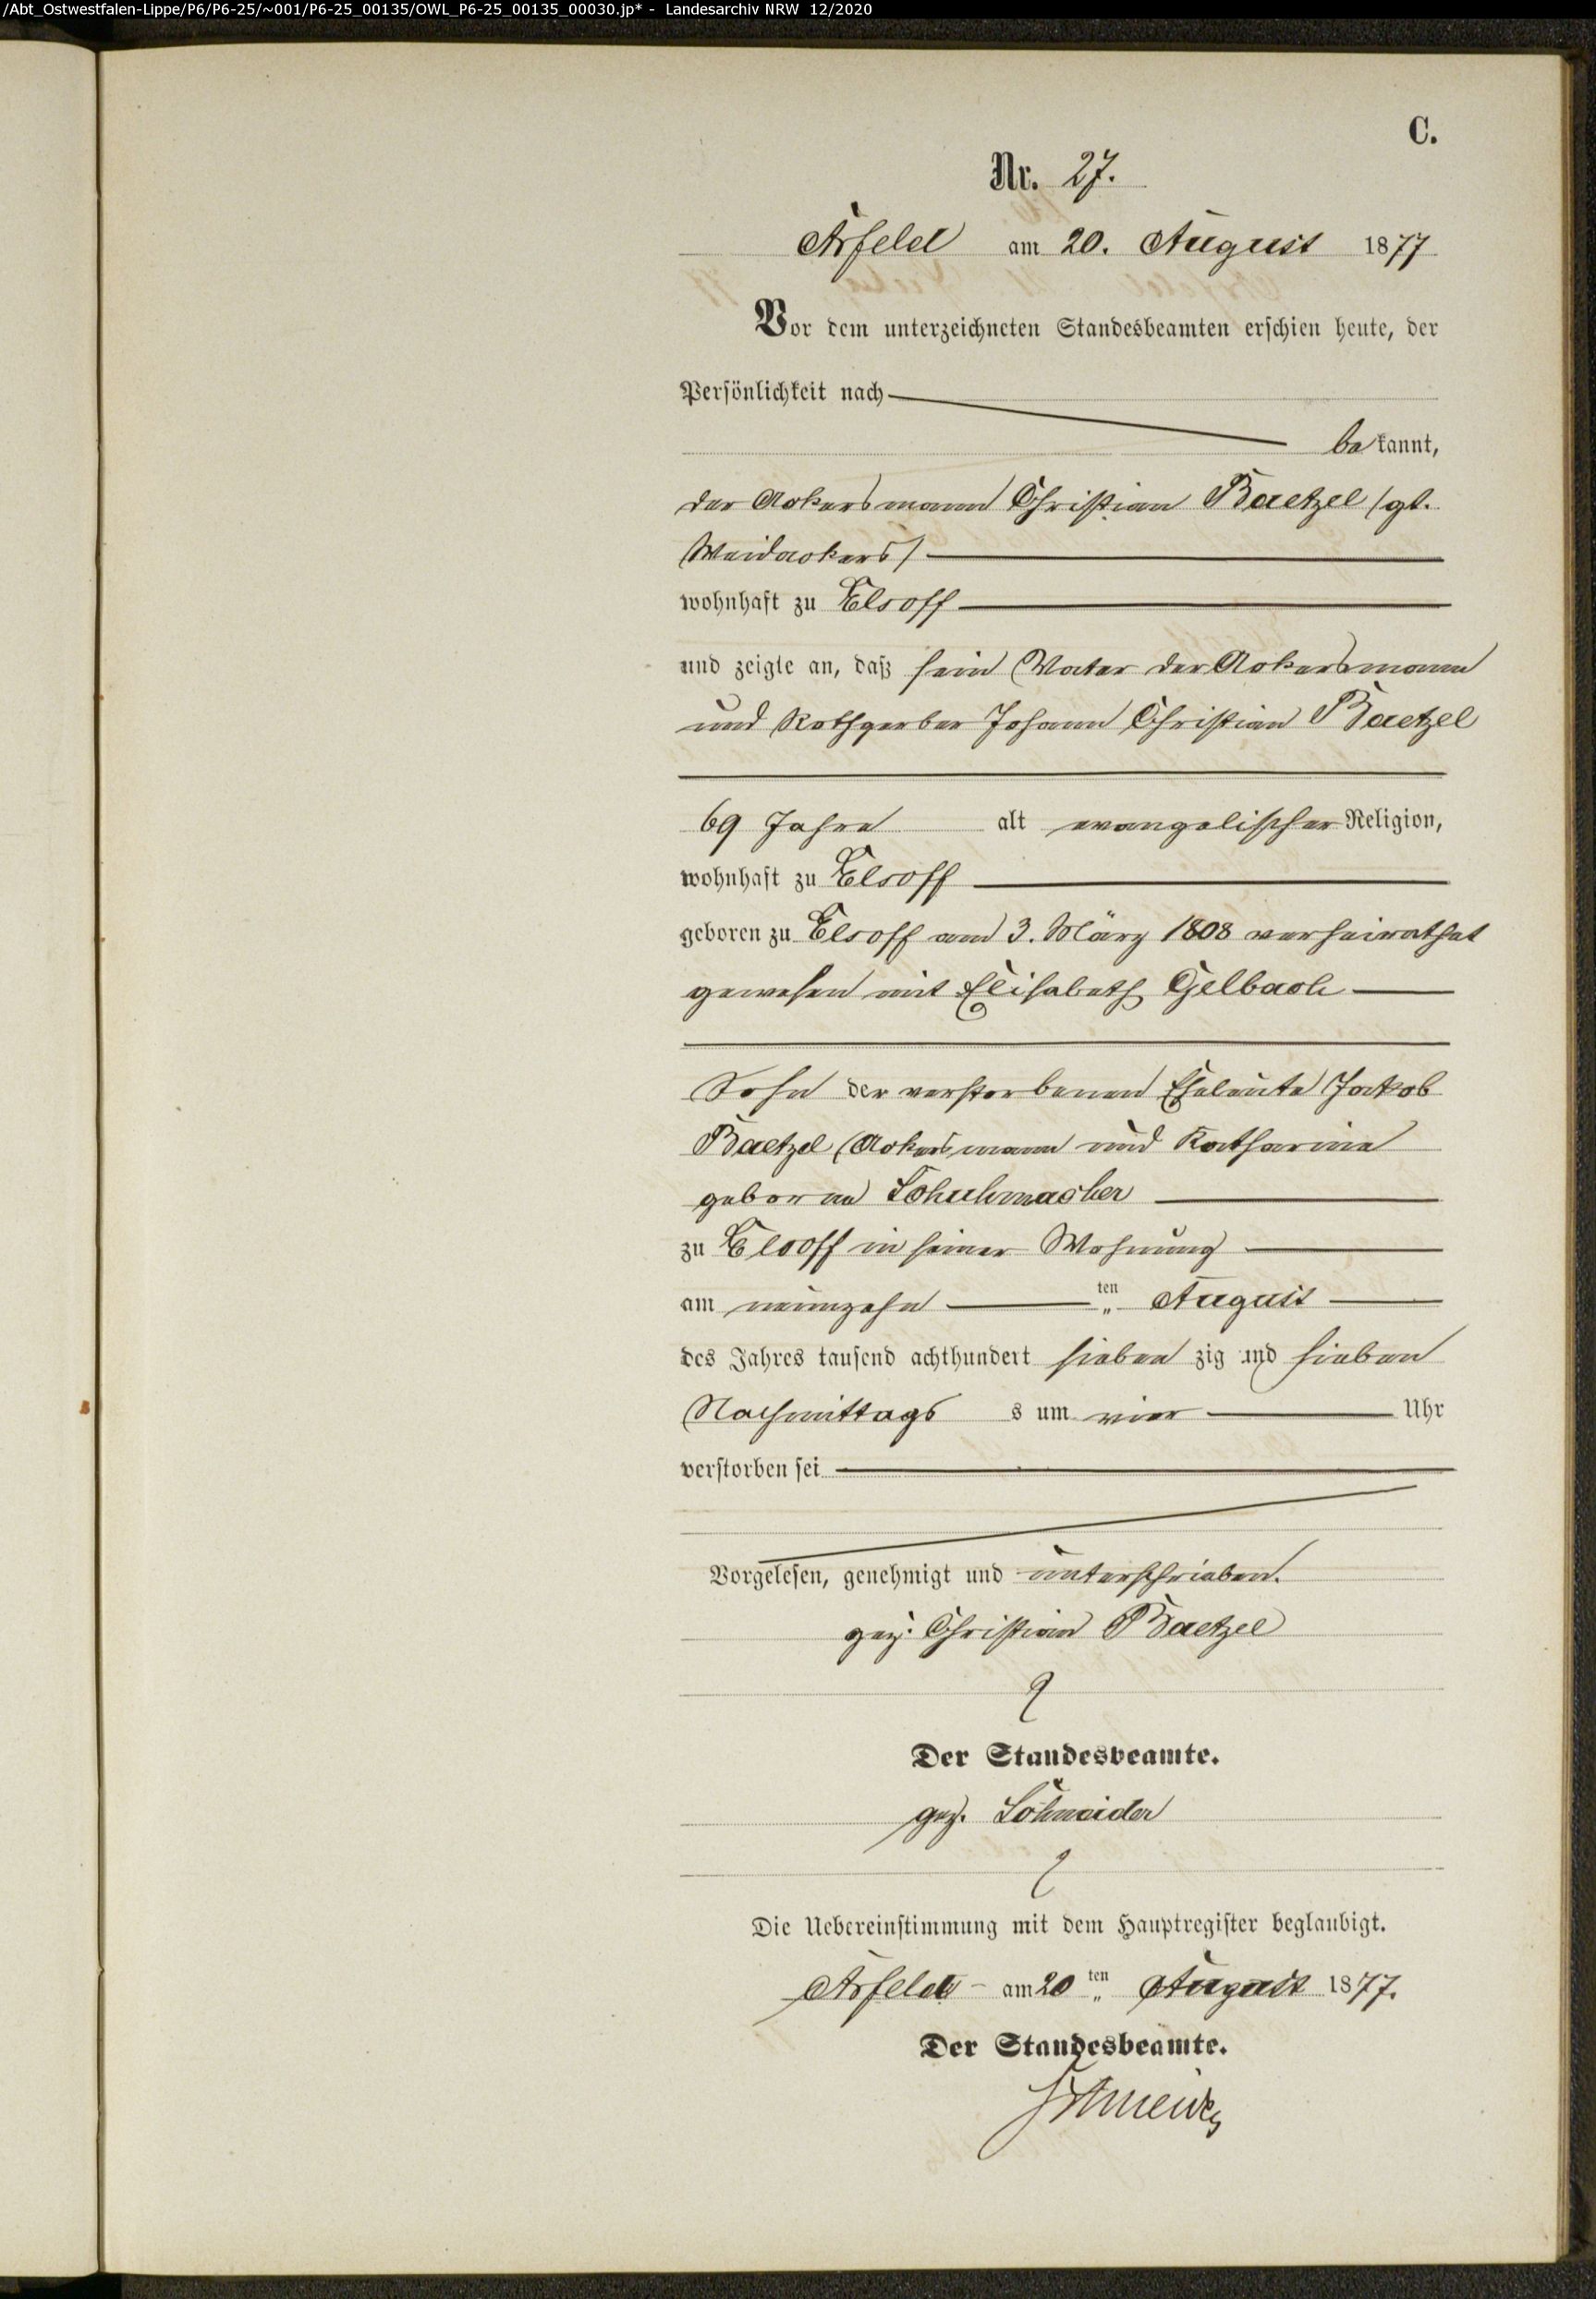 /Abt_Ostwestfalen-Lippe/P6/P6-25/~001/P6-25_00135/OWL_P6-25_00135_00030.jp* - Landesarchiv NRW 12/2020
C.
Nr. 27.
Arfeld am 20. August 1877
Vor dem unterzeichneten Standesbeamten erschien heute, der
Persönlichkeit nach
bekannt,
der Ackersmann Christian Baetzel (gt.
Weidackers)
wohnhaft zu Elsoff
und zeigte an, daß sein Vater der Ackersmann
und Rothgerber Johann Christian Baetzel
69 Jahre alt evangelischer Religion,
wohnhaft zu Elsoff
geboren zu Elsoff am 3. März 1808 verheirathet
gewesen mit Elisabeth Gelbach
Sohn der verstorbenen Eheleute Jakob
Baetzel (Ackersmann und Katharine
geborene Schuhmacher
zu Elsoff in seiner Wohnung
am neunzehn ten August
des Jahres tausend achthundert sieben zig und sieben
Nachmittags s um vier Uhr
verstorben sei
Vorgelesen, genehmigt und unterschrieben.
gez. Christian Baetzel
Der Standesbeamte.
gez. Schneider
Die Uebereinstimmung mit dem Hauptregister beglaubigt.
Arfeld am 20 ten August 1877.
Der Standesbeamte.
Schneider